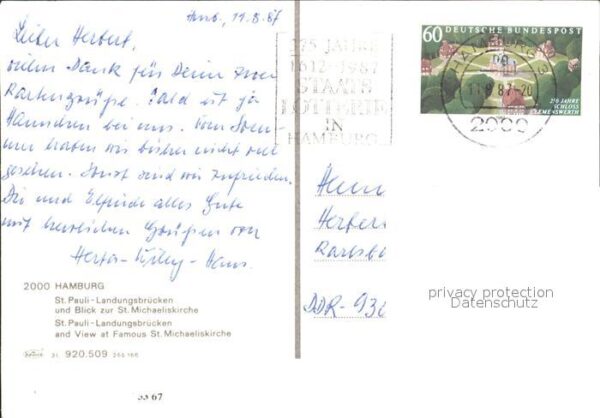 Hmb., 11.8.87
Lieber Herbert,
vielen Dank für Deine zwei
Kartengrüße. Bald ist ja
Hannchen bei uns. Vom Som-
mer haben wir bisher nicht viel
gesehen. Sonst sind wir zufrieden.
Dir und Elfriede alles Gute
mit herzlichen Grüßen von
Hans.
2000 HAMBURG
St. Pauli-Landungsbrücken
und Blick zur St. Michaeliskirche
St. Pauli-Landungsbrücken
and View at Famous St. Michaeliskirche
31 920.509 266 166
67
375 JAHRE
1612-1987
STAATS
LOTTERIE
IN
HAMBURG
60 DEUTSCHE BUNDESPOST
250 JAHRE
SCHLOSS
CLEMENSWERTH
HAMBURG
11.8.87-20
2000
Herrn
Herber
DDR-936
privacy protection
Datenschutz